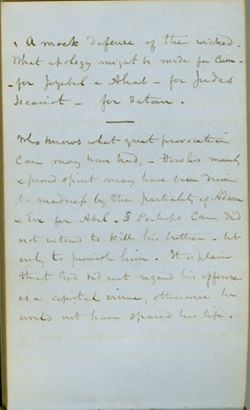 A mock defense of the wicked.
What apology might be made for Cain -
- for Jezebel & Ahab - for Judas
Iscariot - for Satan.
Who knows what great provocation
Cain may have had, - How his manly
& proud spirit may have been driven
to madness by the partiality of Adam
& Eve for Abel. Perhaps Cain did
not intend to kill his brother - but
only to punish him. It is plain
that God did not regard his offense
as a capital crime, otherwise he
would not have spared his life.